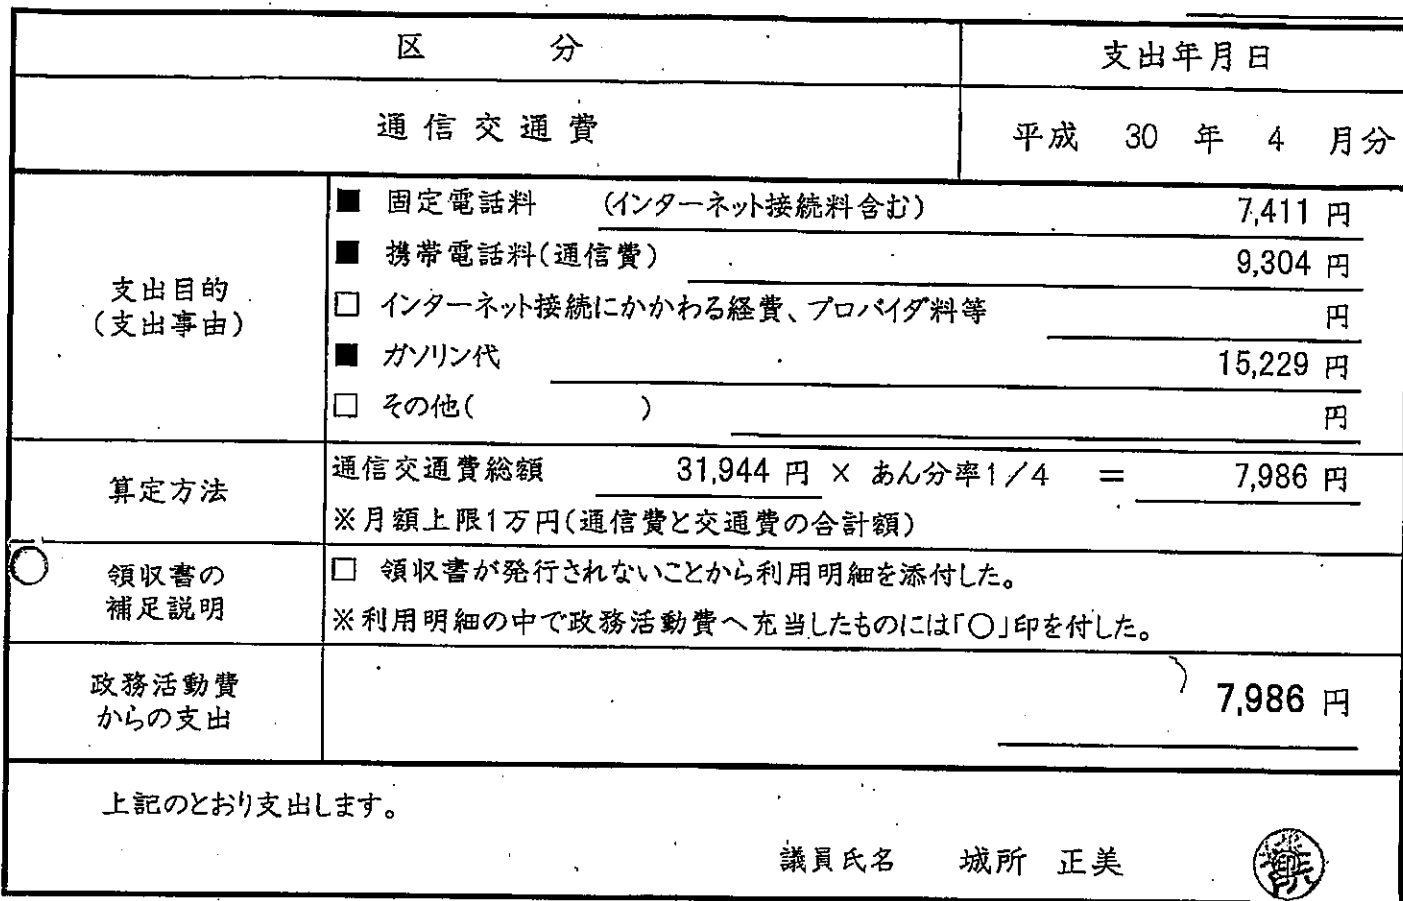 区 分 支出年月日
通信交通費 平成 30 年 4 月分
支出目的
(支出事由)
■ 固定電話料 (インターネット接続料含む) 7,411 円
■ 携帯電話料(通信費) 9,304 円
□ インターネット接続にかかわる経費、プロバイダ料等 円
■ ガソリン代 15,229 円
□ その他( ) 円
算定方法
通信交通費総額 31,944 円 × あん分率1/4 = 7,986 円
※月額上限1万円(通信費と交通費の合計額)
領収書の
補足説明
□ 領収書が発行されないことから利用明細を添付した。
※利用明細の中で政務活動費へ充当したものには「〇」印を付した。
政務活動費
からの支出
7,986 円
上記のとおり支出します。
議員氏名 城所 正美